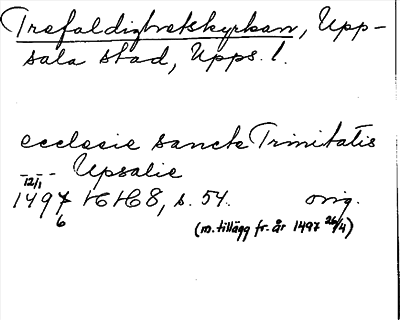 Trefaldighetskyrkan, Upp-
sala stad, Upps. l.
ecclesie sancte Trinitatis
--- Upsalie
12/1
1497 HH 8, s. 54. orig.
6
(m. tillägg fr. år 1497 26/4)